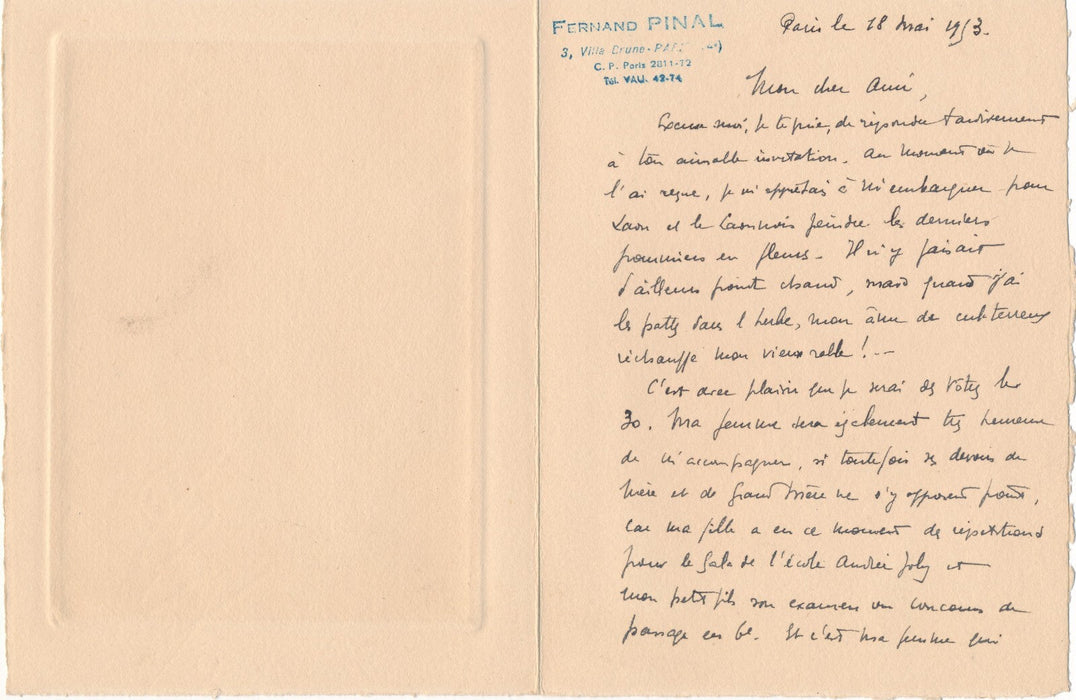 FERNAND PINAL
3, Villa Brune - PARIS
C. P. Paris 2811-72
Tél. VAU. 42-74
Paris le 18 mai 1953.
Mon cher Ami,
Excuse moi, je te prie, de répondre tardivement
à ton aimable invitation. Au moment où je
l'ai reçue, je m'apprêtais à m'embarquer pour
Laon et le Laonnois peindre les derniers
pommiers en fleurs. Il n'y faisait
d'ailleurs point chaud, mais quand j'ai
les pattes dans l'herbe, mon âme de cul-terreux
réchauffe mon vieux rable ! --
C'est avec plaisir que je serai des vôtres le
30. Ma femme sera également très heureuse
de m'accompagner, si toutefois ses devoirs de
Mère et de Grand Mère ne s'y opposent point,
car ma fille a en ce moment des répétitions
pour le Gala de l'école Andrée Joly et
mon petit fils son examen ou concours de
passage en 6e. Et c'est ma femme qui